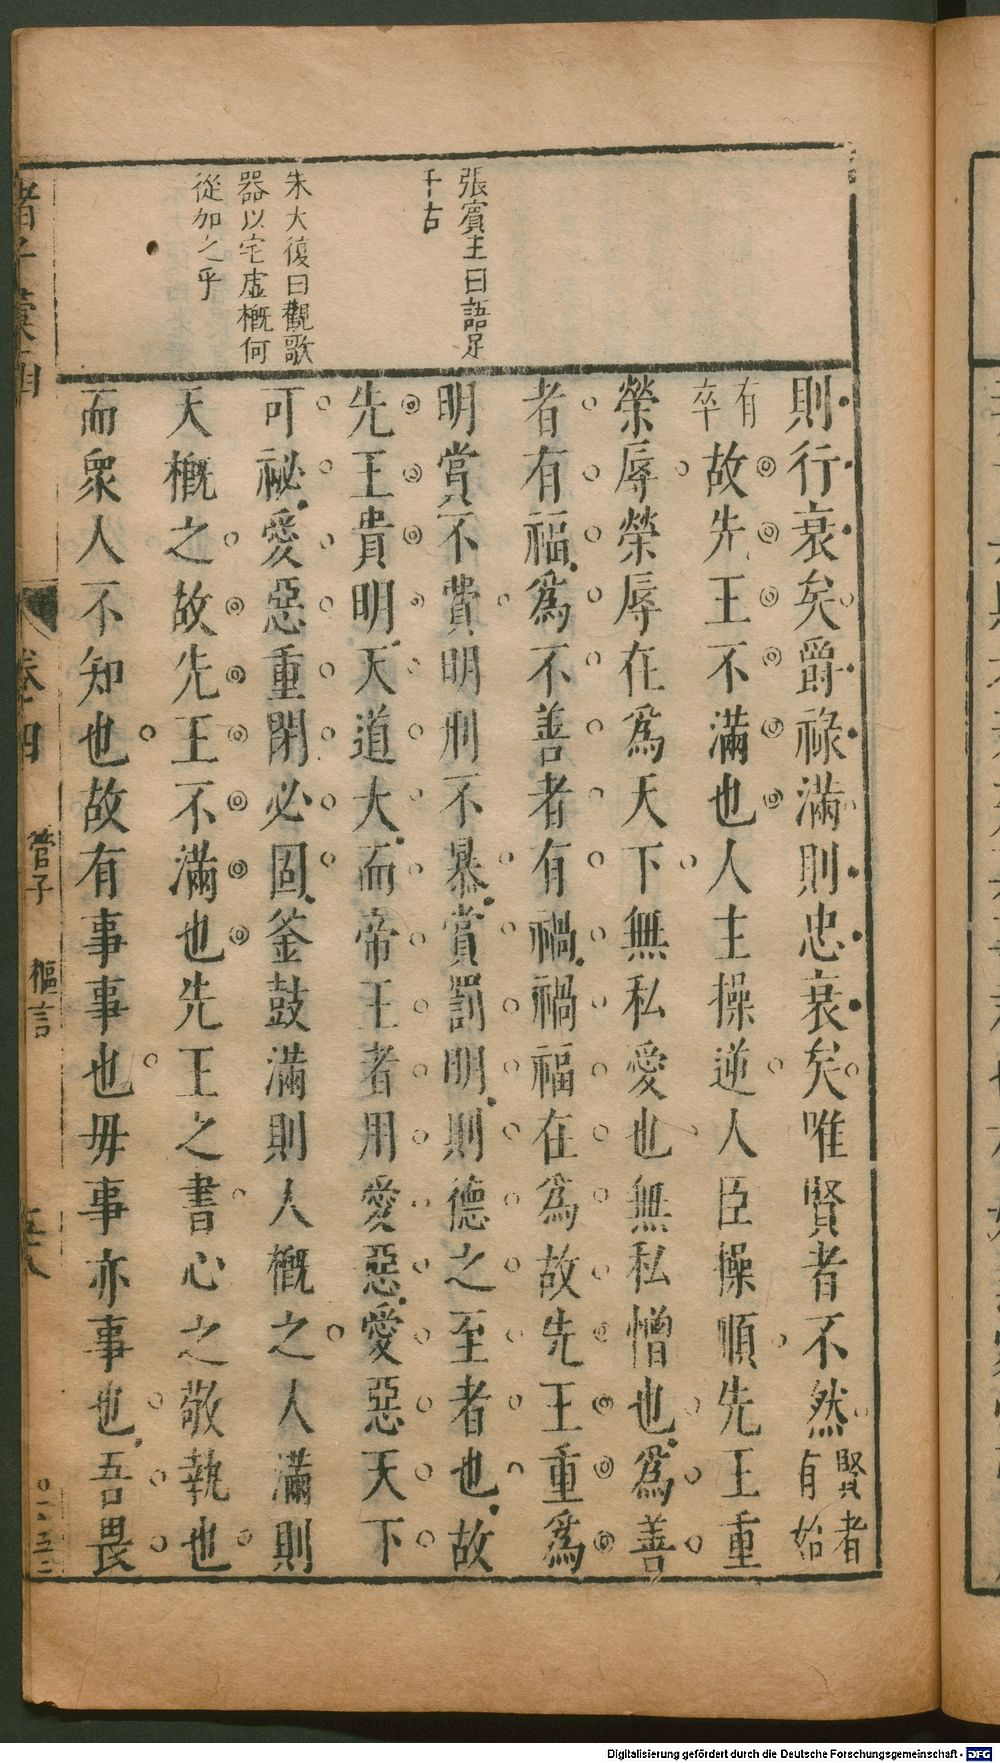 張賓王曰語足
千古
朱大復曰觀欹
器以宅虛槪何
從加之乎
則行衰矣爵祿滿則忠衰矣唯賢者不然賢者有始
有卒故先王不滿也人主操逆人臣操順先王重
榮辱榮辱在為天下無私愛也無私憎也為善
者有福為不善者有禍禍福在為故先王重為
明賞不費明刑不暴賞罰明則德之至者也故
先王貴明天道大而帝王者用愛惡愛惡天下
可祕愛惡重閉必固釜鼓滿則人槪之人滿則
天槪之故先王不滿也先王之書心之敬執也
而衆人不知也故有事事也毋事亦事也吾畏
管子 樞言
Digitalisierung gefördert durch die Deutsche Forschungsgemeinschaft - DFG